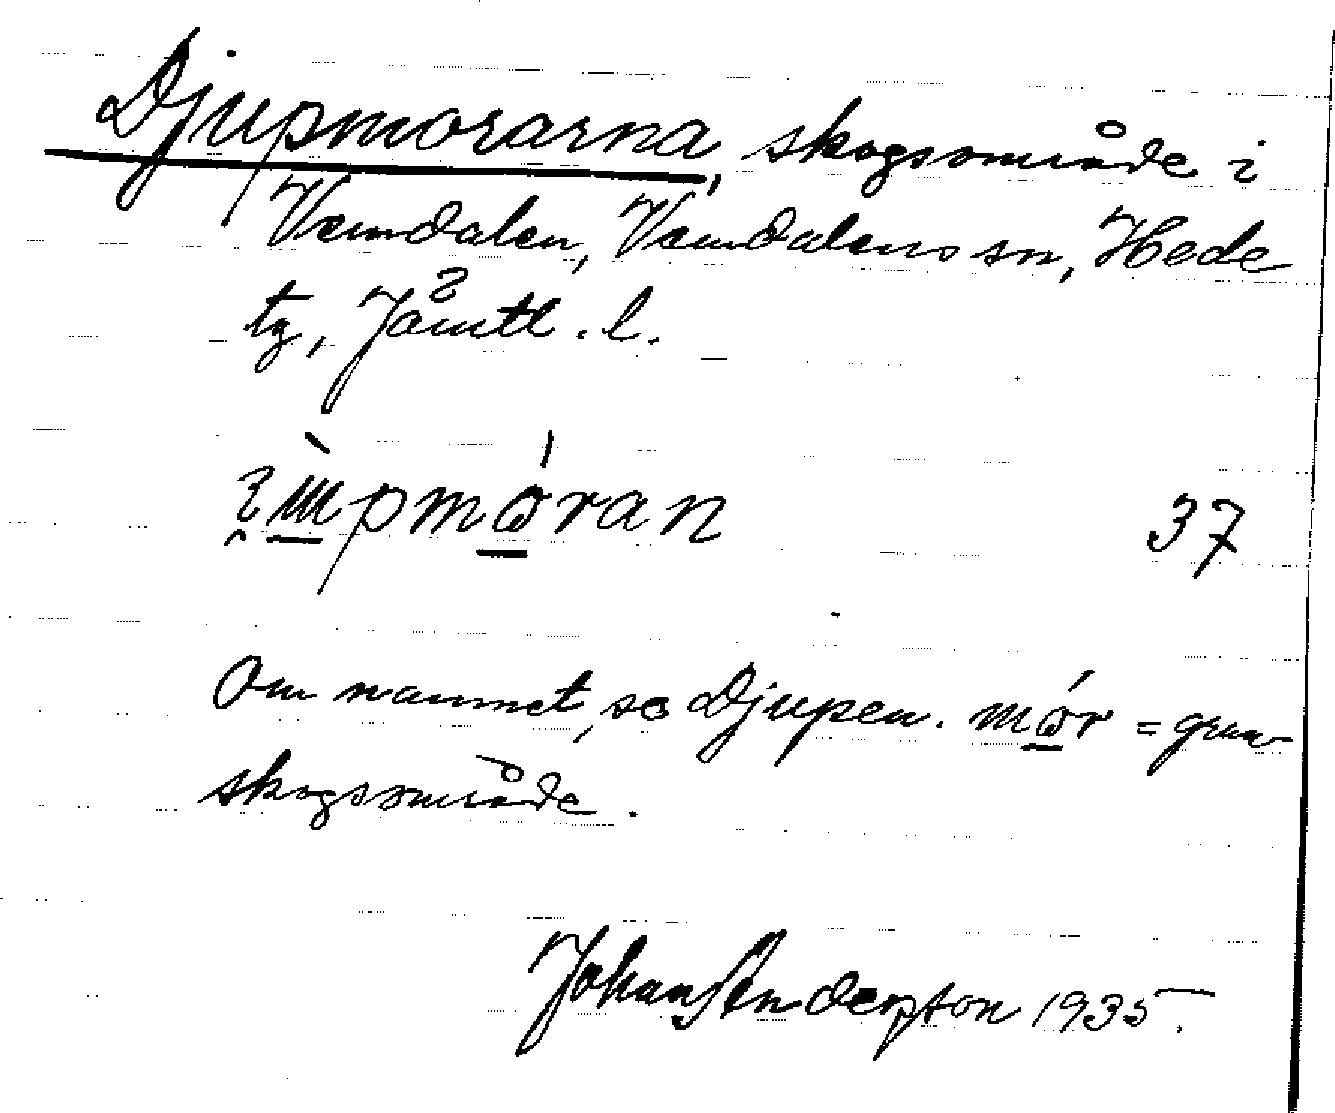 Djupmorarna, skogsområde i
Vemdalen, Vemdalens sn, Hede
tg, Jämtl. l.
37
Om namnet, se Djupen. mór = gran-
skogsområde.
Johan Anderzon 1935.